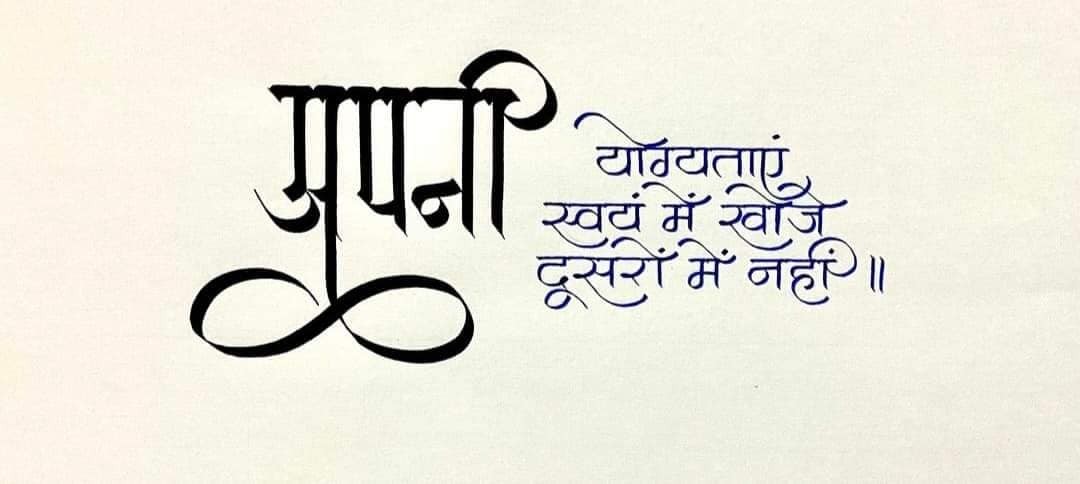 अपनी
योग्यताएं
स्वयं में खोजे
दूसरों में नहीं॥